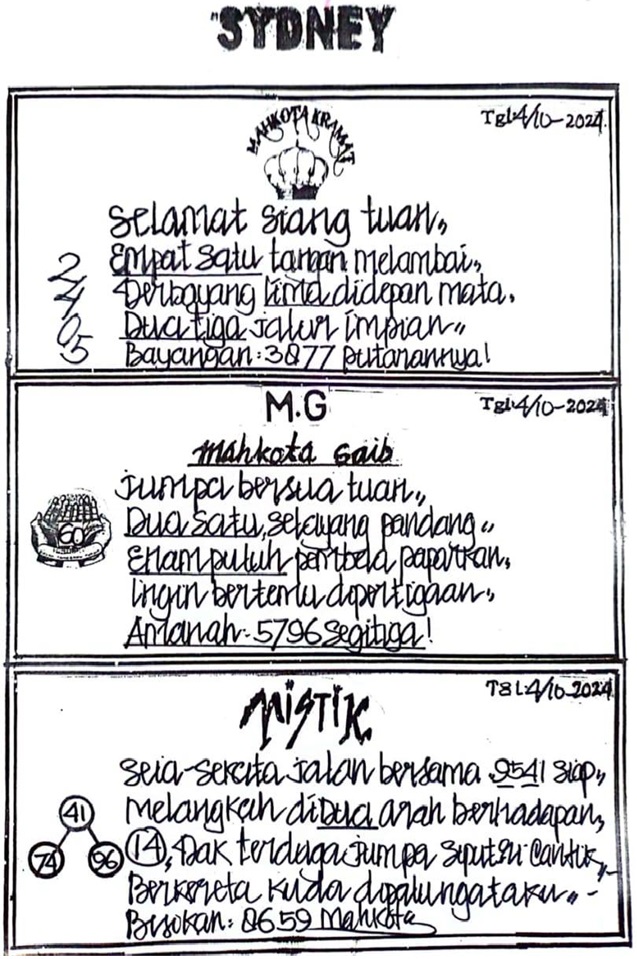 "SYDNEY
MAHKOTA KRAMAT
Tgl:4/10-2024.
Selamat siang tuan,,
Empat satu tangan melambai,,
Berbayang lima didepan mata.
Dua tiga jalur impian,,
Bayangan:3877 putarannya!
2
4
0
5
M.G
Tgl:4/10-2024
Mahkota Gaib
Jumpa bersua tuan,,
60
Dua satu, selayang pandang,,
Enam puluh pembela paparkan,
Ingin bertemu dipertigaan,,
Amanah:5796 Segitiga!
MISTIK
Tgl:4/10-2024
Seia-sekata jalan bersama 9541 siap,,
Melangkah di Dua arah berhadapan,
(14), Dak terduga jumpa siputri cantik,,
Berkereta kuda
Bisikan: 8659 Mahkota
41
74 96